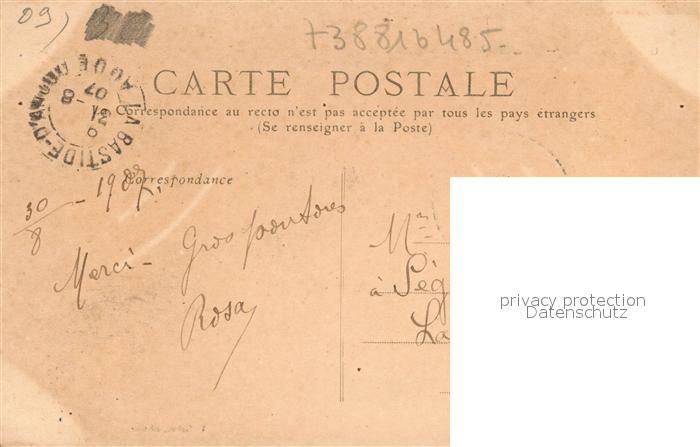 09)
+38816485
CARTE POSTALE
Correspondance au recto n'est pas acceptée par tous les pays étrangers
(Se renseigner à la Poste)
LA BASTIDE-D'
31 -8
07
Correspondance
30/8 - 1907.
Merci - Gros
Rosa
M
à Ség
La
privacy protection
Datenschutz